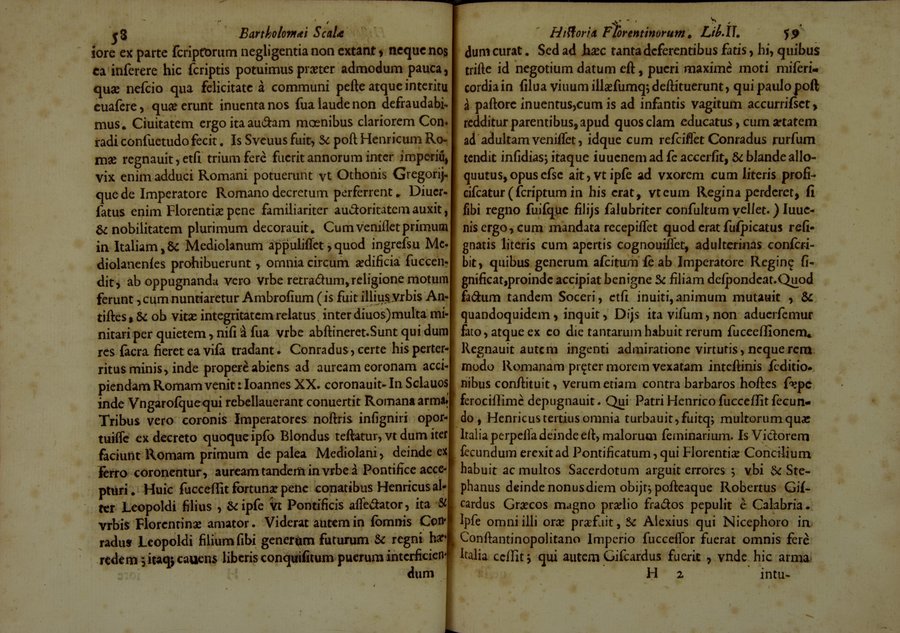 58 Bartholomæi Scalæ
iore ex parte ſcriptorum negligentia non extant, neque nos
ea inferere hic ſcriptis potuimus præter admodum pauca,
quæ neſcio qua felicitate à communi peſte atque interitu
euaſere, quæ erunt inuenta nos ſua laude non defraudabi-
mus. Ciuitatem ergo ita auctam mœnibus clariorem Con-
radi conſuetudo fecit. Is Sveuus fuit, & poſt Henricum Ro-
mæ regnauit, etſi trium ferè fuerit annorum inter imperiũ,
vix enim adduci Romani potuerunt vt Othonis Gregorij-
que de Imperatore Romano decretum perferrent. Diuer-
ſatus enim Florentiæ pene familiariter auctoritatem auxit,
& nobilitatem plurimum decorauit. Cum veniſſet primum
in Italiam, & Mediolanum appuliſſet, quod ingreſſu Me-
diolanenſes prohibuerunt, omnia circum ædificia ſuccen-
dit, ab oppugnanda vero vrbe retractum, religione motum
ferunt, cum nuntiaretur Ambroſium (is fuit illius vrbis An-
tiſtes, & ob vitæ integritatem relatus inter diuos) multa mi-
nitari per quietem, niſi à ſua vrbe abſtineret. Sunt qui dum
res ſacra fieret ea viſa tradant. Conradus, certe his perter-
ritus minis, inde properè abiens ad auream eoronam acci-
piendam Romam venit: Ioannes XX. coronauit. In Sclauos
inde Vngaroſque qui rebellauerant conuertit Romana arma.
Tribus vero coronis Imperatores noſtris inſigniri opor-
tuiſſe ex decreto quoque ipſo Blondus teſtatur, vt dum iter
faciunt Romam primum de palea Mediolani, deinde ex
ferro coronentur, auream tandem in vrbe à Pontifice acce-
pturi. Huic ſucceſſit fortunæ pene conatibus Henricus al-
ter Leopoldi filius, & ipſe vt Pontificis aſſectator, ita &
vrbis Florentinæ amator. Viderat autem in ſomnis Con-
radus Leopoldi filium ſibi generum futurum & regni hæ-
redem; itaq; cauens liberis conquiſitum puerum interficien-
dum
Hiſtoria Florentinorum. Lib. II. 59
dum curat. Sed ad hæc tanta deferentibus fatis, hi, quibus
triſte id negotium datum eſt, pueri maximè moti miſeri-
cordia in ſilua viuum illæſumq; deſtituerunt, qui paulo poſt
à paſtore inuentus, cum is ad infantis vagitum accurriſſet,
redditur parentibus, apud quos clam educatus, cum ætatem
ad adultam veniſſet, idque cum reſciſſet Conradus rurſum
tendit inſidias; itaque iuuenem ad ſe accerſit, & blande allo-
quutus, opus eſſe ait, vt ipſe ad vxorem cum literis profi-
ciſcatur (ſcriptum in his erat, vt eum Regina perderet, ſi
ſibi regno ſuiſque filijs ſalubriter conſultum vellet.) Iuue-
nis ergo, cum mandata recepiſſet quod erat ſuſpicatus reſi-
gnatis literis cum apertis cognouiſſet, adulterinas conſcri-
bit, quibus generum aſcitum ſe ab Imperatore Reginę ſi-
gnificat, proinde accipiat benigne & filiam deſpondeat. Quod
factum tandem Soceri, etſi inuiti, animum mutauit, &
quandoquidem, inquit, Dijs ita viſum, non aduerſemur
fato, atque ex eo die tantarum habuit rerum ſucceſſionem.
Regnauit autem ingenti admiratione virtutis, neque rem
modo Romanam pręter morem vexatam inteſtinis ſeditio-
nibus conſtituit, verum etiam contra barbaros hoſtes ſæpe
ferociſſimè depugnauit. Qui Patri Henrico ſucceſſit ſecun-
do, Henricus tertius omnia turbauit, fuitq; multorum quæ
Italia perpeſſa deinde eſt, malorum ſeminarium. Is Victorem
ſecundum erexit ad Pontificatum, qui Florentiæ Concilium
habuit ac multos Sacerdotum arguit errores; vbi & Ste-
phanus deinde nonus diem obijt; poſteaque Robertus Giſ-
cardus Græcos magno prælio fractos pepulit è Calabria.
Ipſe omni illi oræ præfuit, & Alexius qui Nicephoro in
Conſtantinopolitano Imperio ſucceſſor fuerat omnis ferè
Italia ceſſit; qui autem Giſcardus fuerit, vnde hic arma
H 2 intu-